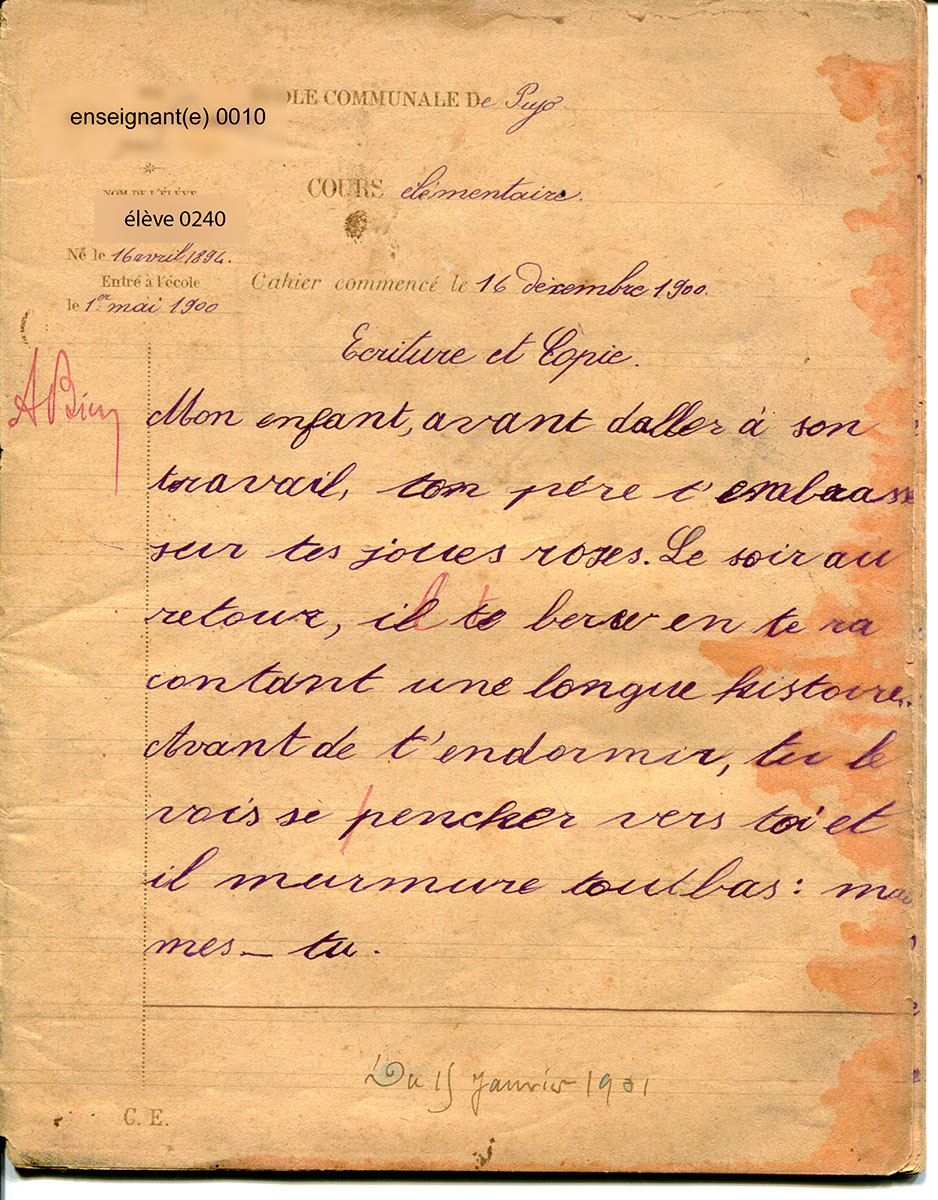 OLE COMMUNALE De Pujo.
enseignant(e) 0010
COURS elémentaire.
NOM DE L'ÉLÈVE
élève 0240
Né le 16 avril 1894.
Entré à l'école
le 1er mai 1900
Cahier commencé le 16 décembre 1900.
Ecriture et Copie.
A Bien
Mon enfant, avant daller à son
travail, ton père t'embrasse
sur tes joues roses. Le soir au
retour, il te berce en te ra
contant une longue histoire.
Avant de t'endormir, tu le
vois se pencher vers toi et
il murmure tout bas : m
mes_ tu.
Du 15 Janvier 1901
C. E.